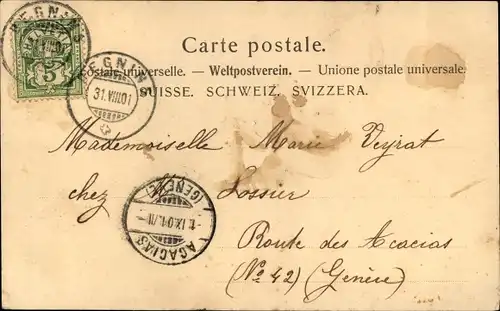 BEGNINS
HELVETIA
5
BEGNINS
31.VIII.01
Carte postale.
Postale universelle. — Weltpostverein. — Unione postale universale.
SUISSE. SCHWEIZ. SVIZZERA.
Mademoiselle Marie Veyrat
chez M. Lossier
Route des Acacias
(No 42) (Genève)
ACACIAS (GENÈVE)
1.IX.01.